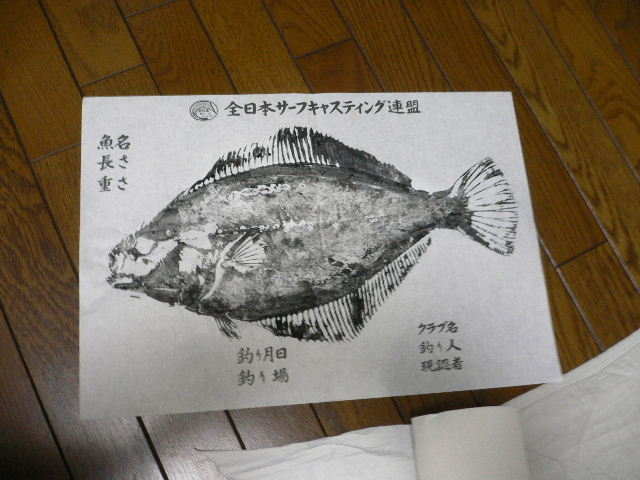 全日本サーフキャスティング連盟
魚名
長さ
重さ
釣り月日
釣り場
クラブ名
釣り人
現認者